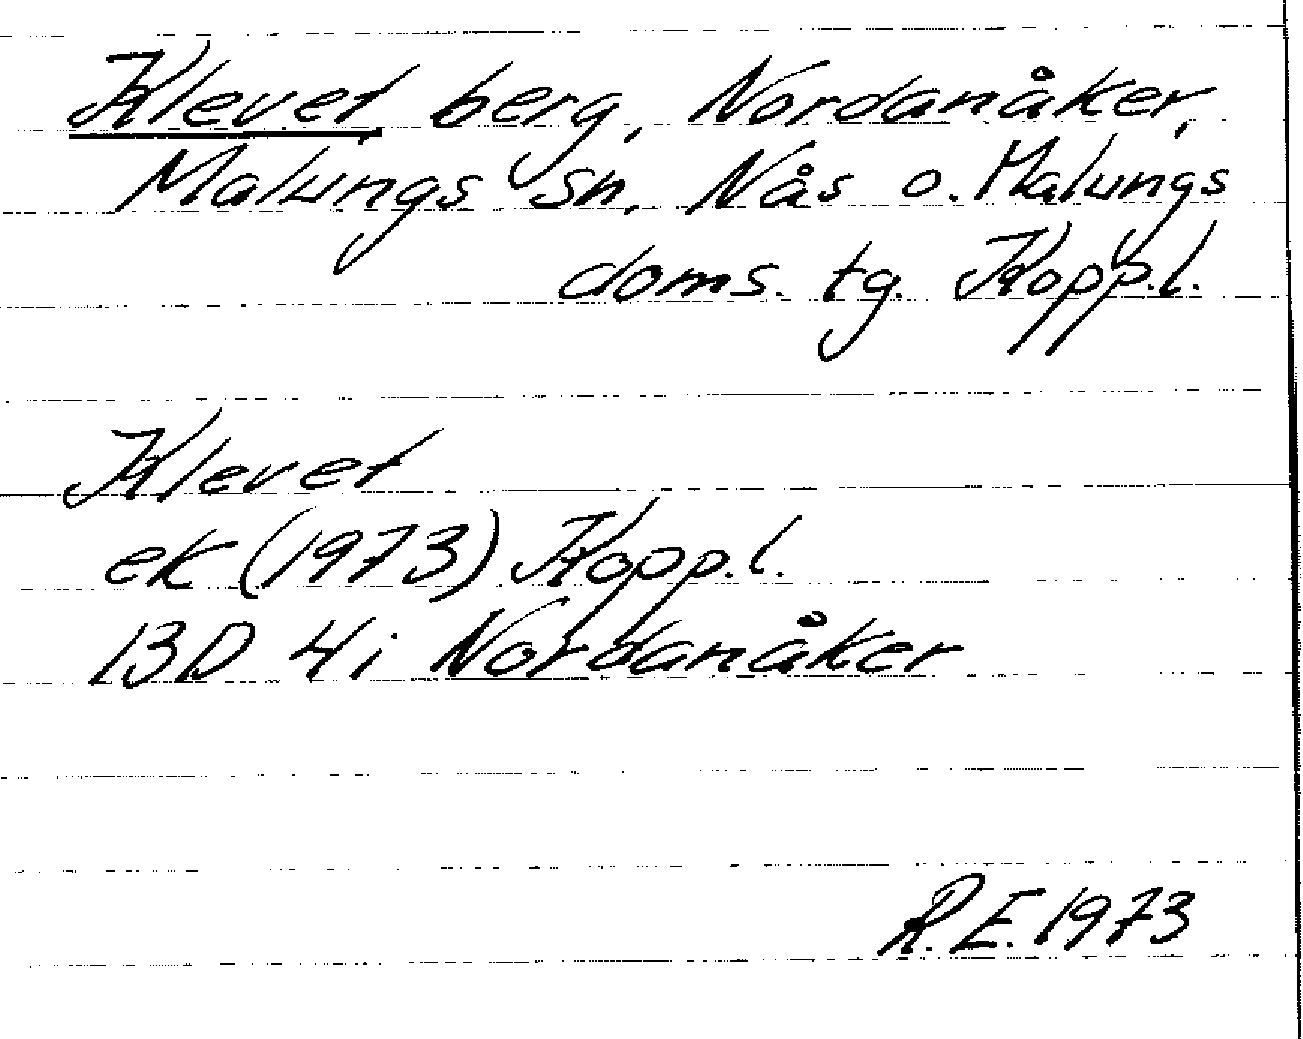 Klevet berg, Nordanåker,
Malungs sn, Nås o. Malungs
doms. tg. Kopp.l.
Klevet
ek (1973) Kopp.l.
13D 4i Nordanåker
R.E. 1973